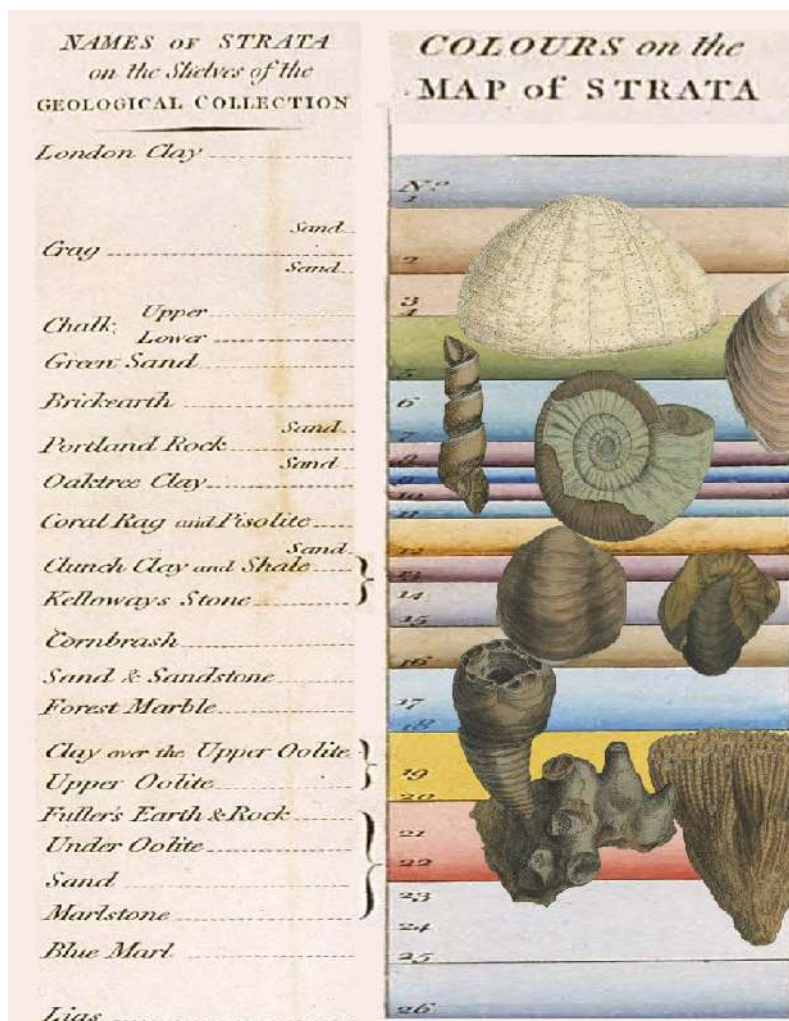 NAMES OF STRATA
on the Shelves of the
GEOLOGICAL COLLECTION
London Clay
Sand
Crag
Sand
Chalk Upper
Lower
Green Sand
Brickearth
Sand
Portland Rock
Sand
Oaktree Clay
Coral Rag and Pisolite
Sand
Clunch Clay and Shale
Kelloways Stone
Cornbrash
Sand & Sandstone
Forest Marble
Clay over the Upper Oolite
Upper Oolite
Fuller's Earth & Rock
Under Oolite
Sand
Marlstone
Blue Marl
Lias
COLOURS on the
MAP of STRATA
No
1
2
3
4
5
6
7
8
9
10
11
12
13
14
15
16
17
18
19
20
21
22
23
24
25
26